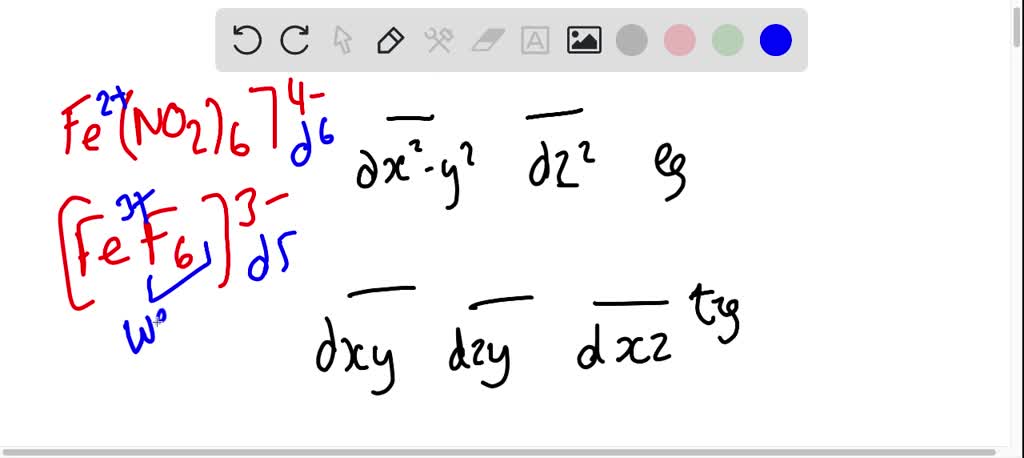 Fe²⁺(NO₂)₆]⁴⁻ d⁶
[Fe³⁺F₆]³⁻ d5
w
dx²-y² dz² eg
dxy dzy dxz t₂g
A